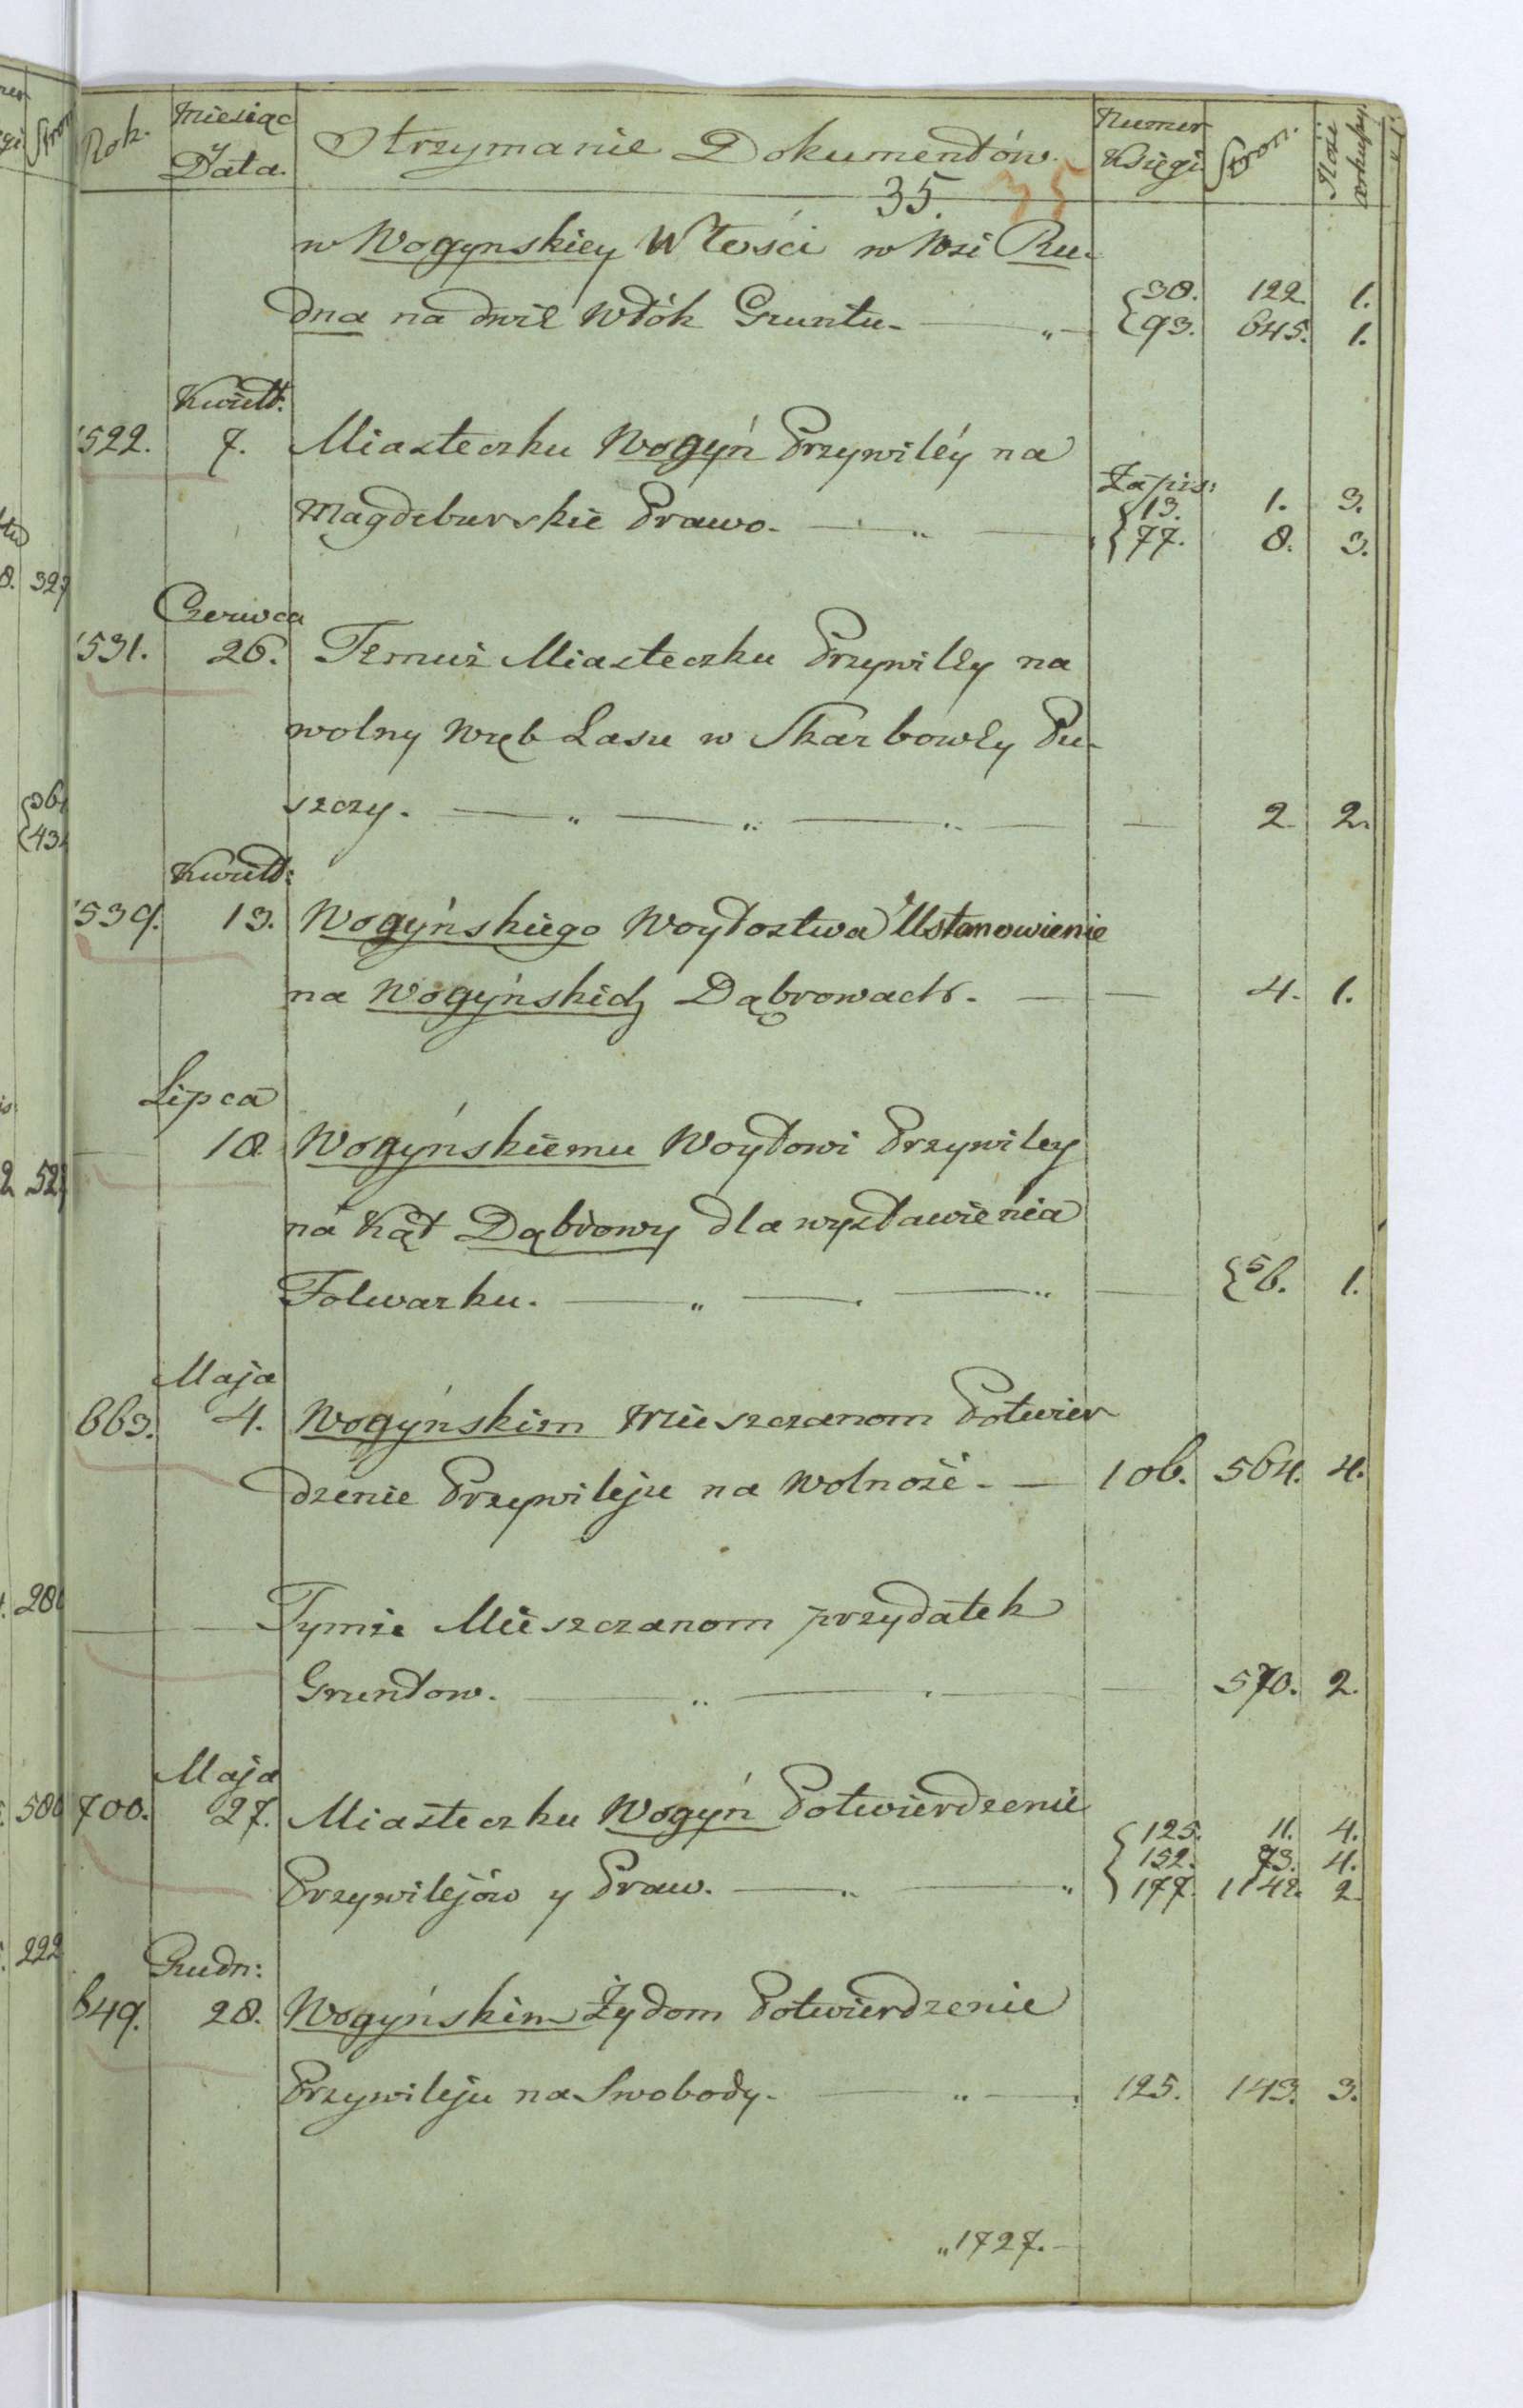 Rok. Miesiąc y Data. Otrzymanie Dokumentów. Numer Księgi Stron. Ilość
35. 35
w Wogynskiey Włości w Wsi Ru-
dna na dwie Włók Gruntu. {30. 122 1.
{93. 645. 1.
Kwiet:
1522. 7. Miasteczku Wogyń Przywiléy na
Zapis:
Magdeburskie Prawo. {13. 1. 3.
{77. 8. 3.
Czerwca
1531. 26. Temuż Miasteczku Przywiley na
wolny Wręb Lasu w Skarbowey Pu-
szczy. 2 2.
Kwiet:
1539. 13. Wogyńskiego Woytostwa Ustanowienie
na Wogyńskich Dąbrowach. 4. 1.
Lipca
18 Wogyńskiemu Woytowi Przywiley
na Kąt Dąbrowy dla wystawienia
Folwarku. {56. 1.
Maja
663. 4. Wogyńskim Mieszczanom Potwier
dzenie Przywileju na Wolność. 106. 564. 4.
Tymże Mieszczanom przydatek
Gruntow. 570. 2.
Maja
700. 27. Miasteczku Wogyń Potwierdzenie
{125. 11. 4.
{152. 73. 4.
Przywilejów y Praw. {177. 1142. 2
Grudn:
649. 28. Wogyńskim Żydom Potwierdzenie
Przywileju na Swobody. 125. 143. 3.
„1727.